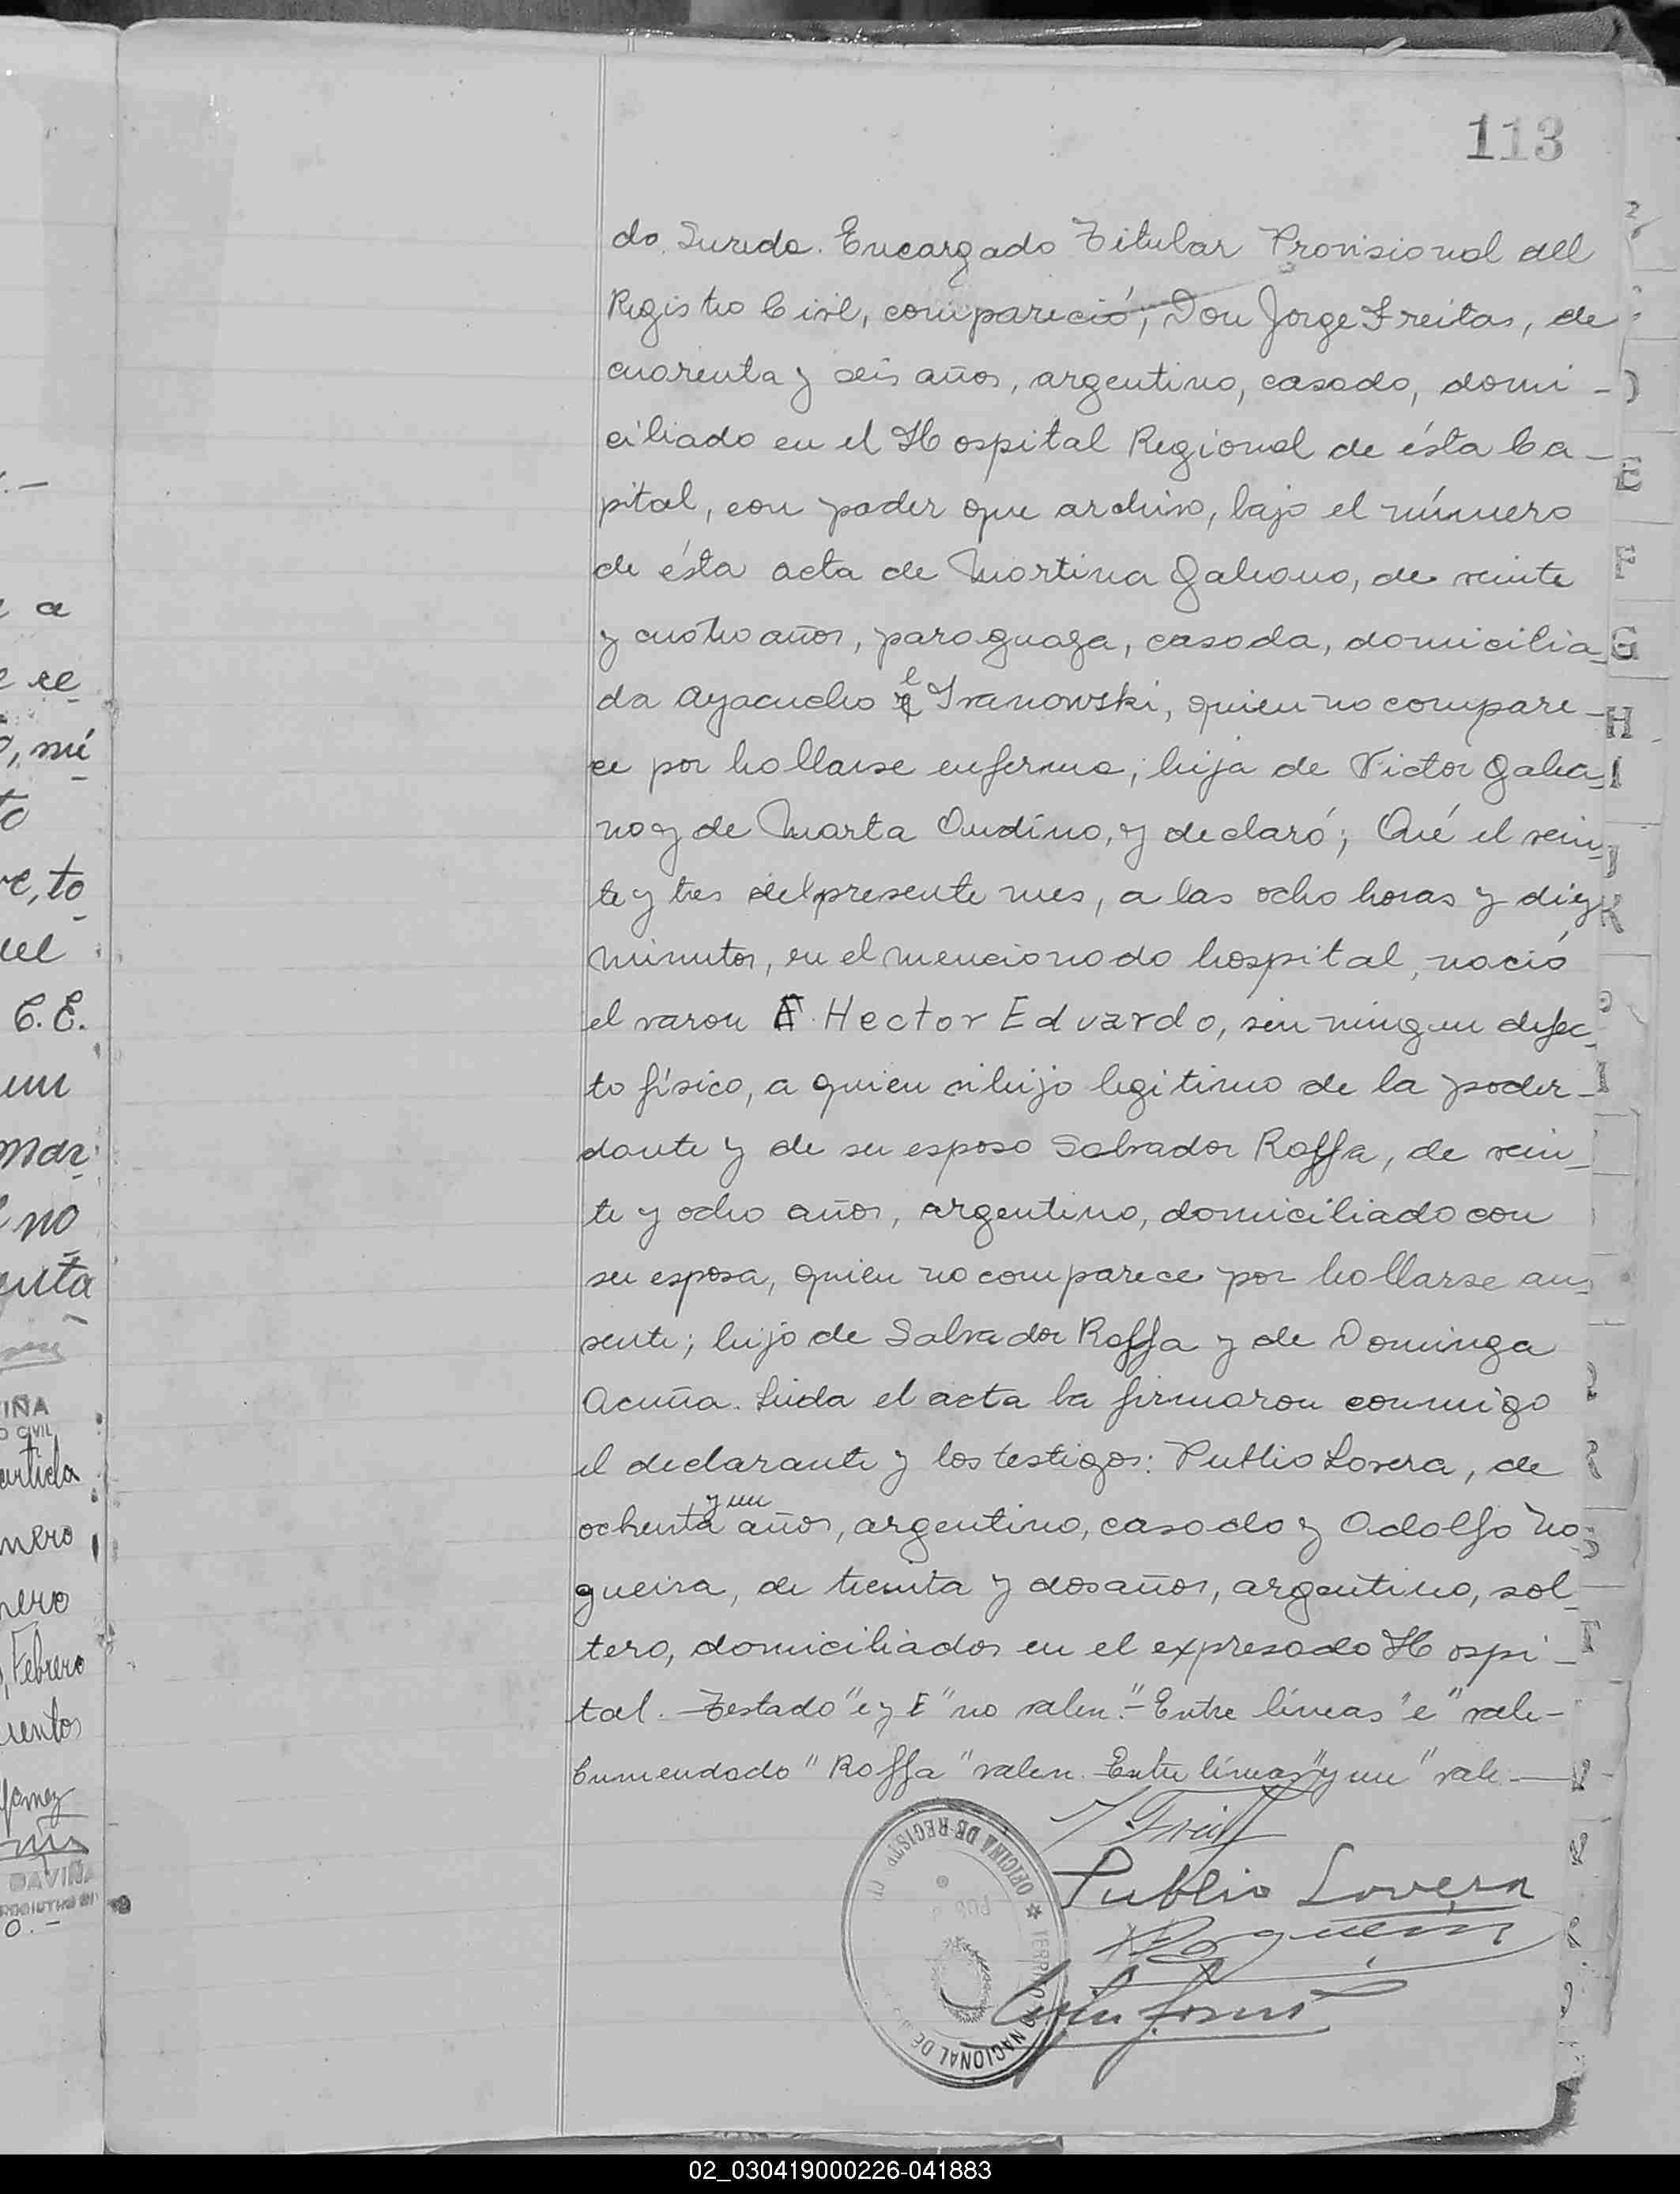 113
do Sureda. Encargado Titular Provisional del
Registro Civil, compareció; Don Jorge Freitas, de
cuarenta y seis años, argentino, casado, domi-
ciliado en el Hospital Regional de ésta Ca-
pital, con poder que archivo, bajo el número
de ésta acta de Martina Galeano, de veinte
y cuatro años, paraguaya, casada, domicilia-
da Ayacucho e Ivanowski, quien no compare-
ce por hallarse enferma; hija de Victor Galea-
no y de Marta Oudino, y declaró; Qué el vein-
te y tres del presente mes, a las ocho horas y diez
minutos, en el mencionado hospital, nació
el varon E. Hector Eduardo, sin ningun defec-
to físico, a quien vi hijo legitimo de la poder-
dante y de su esposo Salvador Roffa, de vein-
te y ocho años, argentino, domiciliado con
su esposa, quien no comparece por hallarse au-
sente; hijo de Salvador Roffa y de Dominga
Acuña. Leida el acta la firmaron conmigo
el declarante y los testigos: Publio Lovera, de
ochenta y un años, argentino, casado y Adolfo No-
gueira, de treinta y dos años, argentino, sol-
tero, domiciliados en el expresado Hospi-
tal. Testado "e y E" no valen.- Entre líneas "e" vale-
Enmendado "Roffa" valen. Entre líneas "y un" vale.
J Freitas
Publio Lovera
Nogueira
OFICINA DE REGISTRO
TERRITORIO NACIONAL DE
02_030419000226-041883